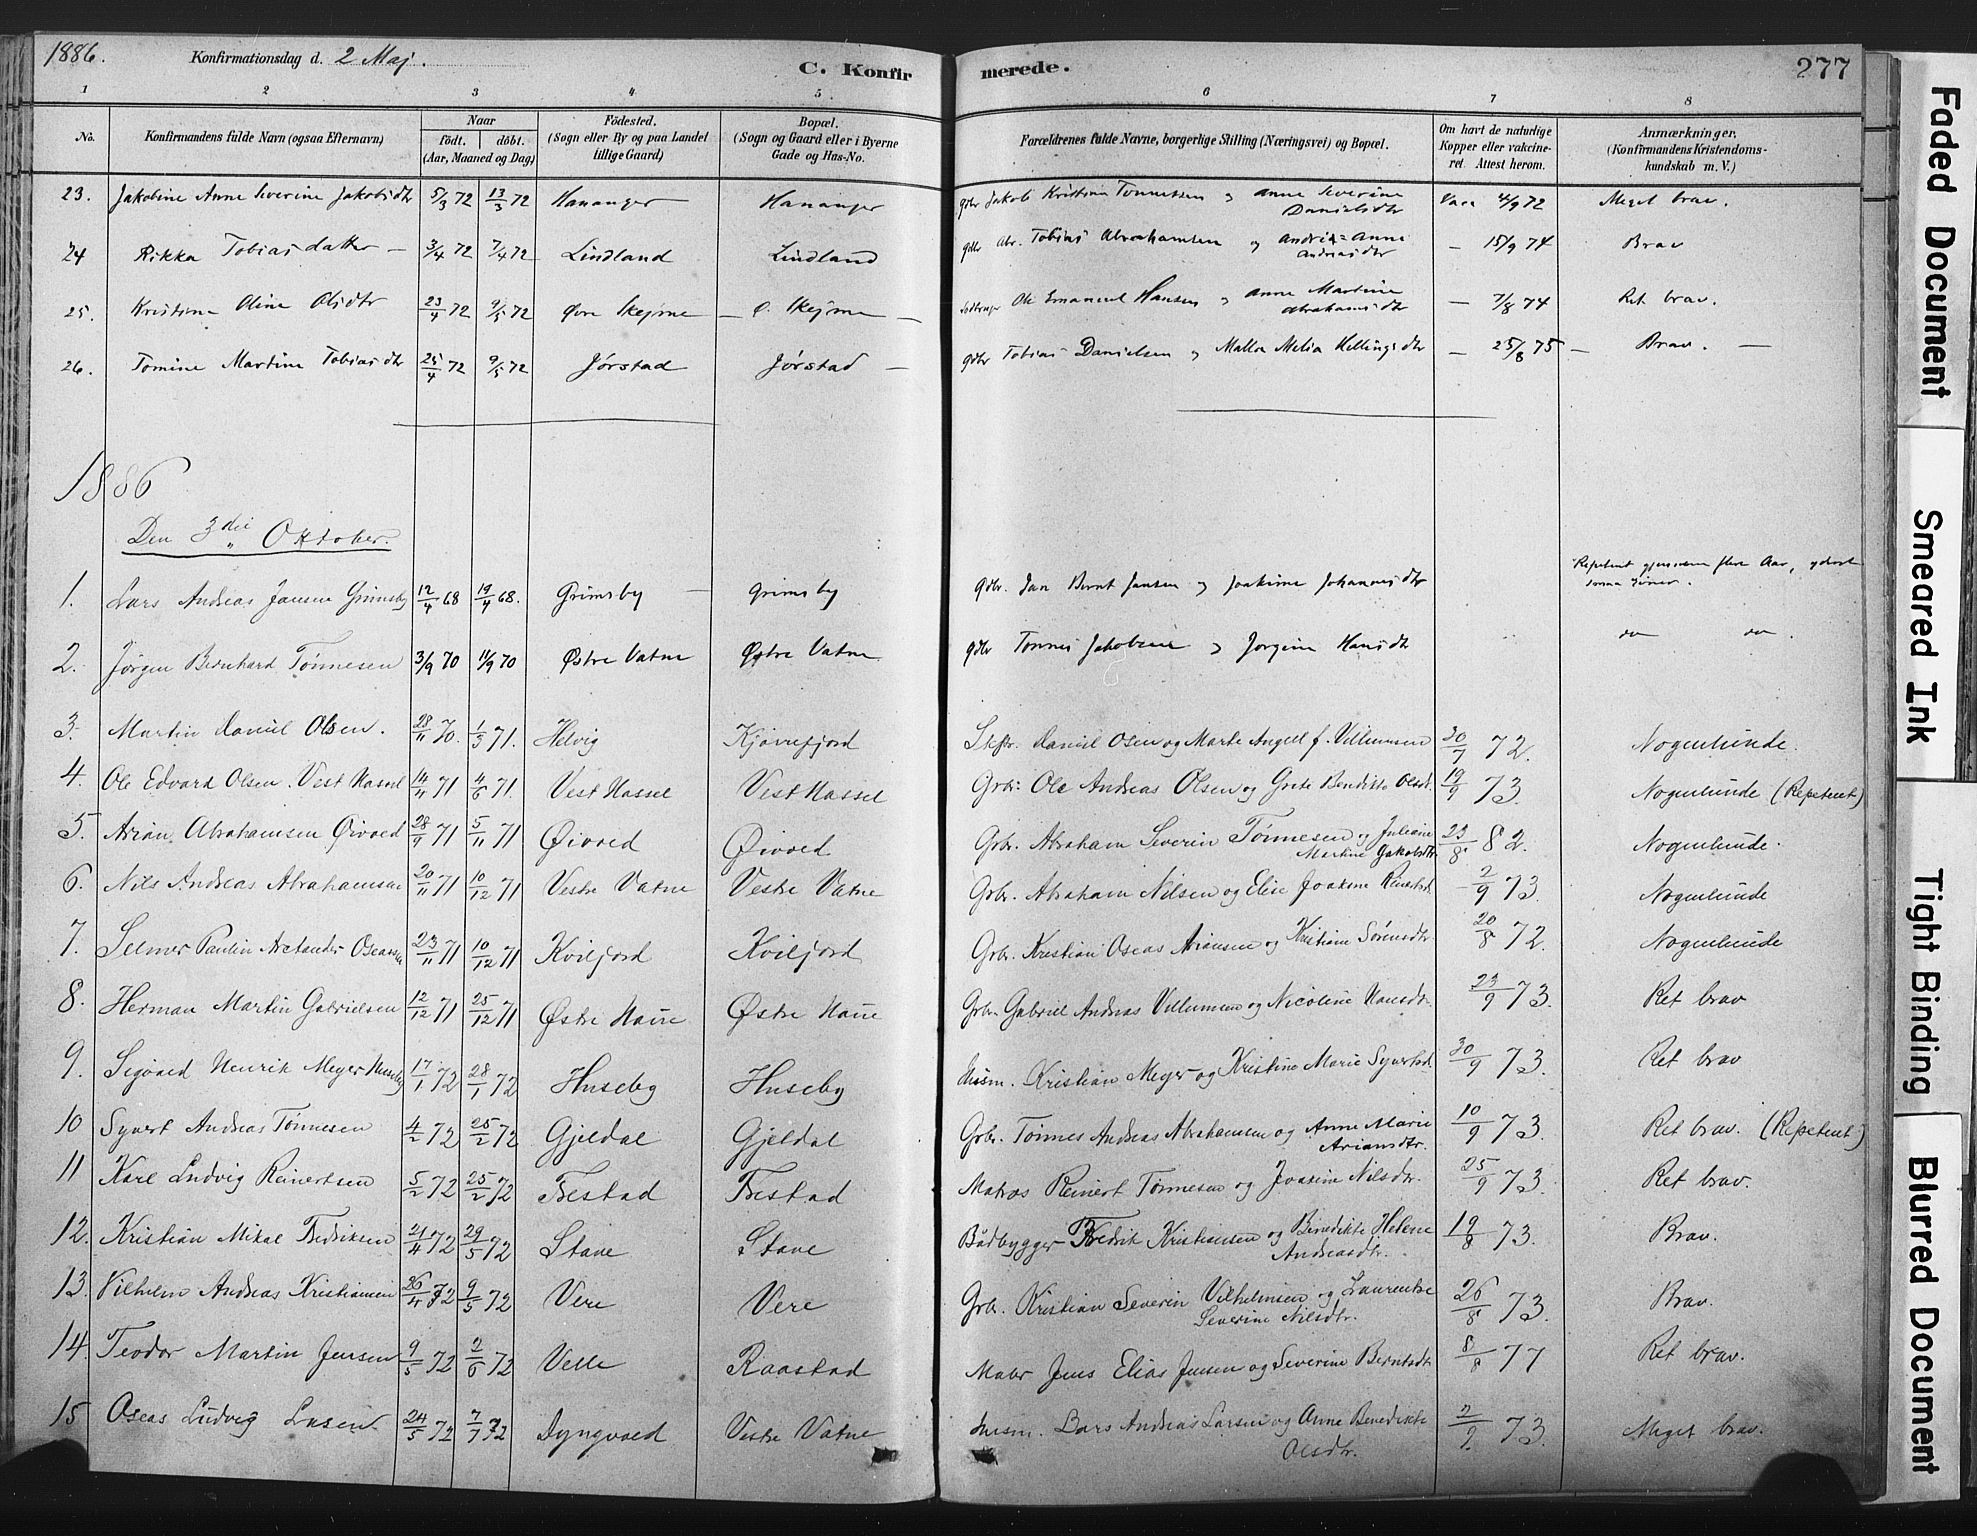 1886. Konfirmationsdag d. 2 Maj. C. Konfir merede. 277
1 2 3 4 5 6 7 8
No. Konfirmandens fulde Navn (ogsaa Efternavn) Naar födt. döbt. (Aar, Maaned og Dag) Födested. (Sogn eller By og paa Landet tillige Gaard) Bopæl. (Sogn og Gaard eller i Byerne Gade og Hus-No. Forældrenes fulde Navne, borgerlige Stilling (Næringsvei) og Bopæl. Om havt de naturlige Kopper eller vakcineret. Attest herom. Anmærkninger. (Konfirmandens Kristendomskundskab m. V.)
23. Jakobine Anne Severine Jakobsdtr 5/3 72 13/3 72 Hananger Hananger gdbr Jakob Kristian Tønnesen og Anne Severine Danielsdtr Vacc 4/9 72 Meget brav.
24 Rikka Tobiasdatter – 3/4 72 7/4 72 Lindland Lindland gdbr Abr. Tobias Abrahamsen og Andrea Anne Andreasdtr – 15/9 74 Brav
25. Kristine Oline Olsdtr 23/4 72 9/5 72 Øvre Skejme – Ø. Skejme – Ole Emanuel Hansen og Anne Martine Abrahamsdtr – 7/8 74 Ret brav.
26. Tomine Martine Tobiasdtr 25/4 72 9/5 72 Jørstad Jørstad – gdbr Tobias Danielsen og Malla Melia Kellingsdtr – 25/8 75 – Brav. –
1886
Den 3die Oktober.
1. Lars Andreas Jansen Grimsby 12/4 68 19/4 68. Grimsby – Grimsby gdbr. Jan Bernt Jansen og Joakime Johannesdtr Repetent gjennem flere Aar, yderst
2. Jørgen Bernhard Tønnesen 3/9 70 11/9 70 Østre Vatne Østre Vatne gdbr Tønnes Jakobsen og Jorgine Hansdtr do do.
3. Martin Daniel Olsen. 28/11 70. 1/3 71. Helvig Kjørrefjord Daniel Osen og Marte Angell f. Villumsen 20/7 72. Nogenlunde.
4. Ole Edvard Olsen. Vest Hassel 14/4 71 4/6 71. Vest Hassel Vest Hassel Grbr: Ole Andreas Olsen og Grete Bendikte Olsdt. 19/9 73. Nogenlunde (Repetent)
5. Arian Abrahamsen Øivoed 28/9 71 5/11 71 Øivoed Øivoed Grbr. Abraham Severin Tønnesen og Juliane Martine Jakobsdtr. 23/8 82. Nogenlunde.
6. Nils Andreas Abrahamsen 20/11 71 10/12 71 Vestre Vatne Vestre Vatne Grbr. Abraham Nilsen og Elise Joakine Reinertsd. 2/9 73. Nogenlunde
7. Selmer Paulin Oseassen 23/11 71 10/12 71 Kviljord Kviljord Grbr. Kristian Oseas Ariansen og Kristiane Sørensdtr. 20/8 72. Nogenlunde
8. Herman Martin Gabrielsen 12/12 71 25/12 71 Østre Haue Østre Haue Grbr. Gabriel Andreas Villumsen og Nicoline Hansdtr. 23/9 73. Ret brav
9. Sigvard Henrik Meyer Huseby 17/1 72 28/1 72 Huseby Huseby Husm. Kristian Meyer og Kristine Marie Syvertsd. 30/9 73. Ret brav
10 Syvert Andreas Tønnesen 4/2 72 25/2 72 Gjeldal Gjeldal Grbr. Tønnes Andreas Abrahamsen og Anne Marie Ariansdtr. 10/9 73. Ret brav. (Repetent.)
11 Karl Ludvig Reinertsen 5/2 72 25/2 72 Trestad Trestad Matros Reinert Tønnesen og Joakine Nilsdtr. 25/9 73. Ret brav.
12. Kristian Mikal Fredriksen 21/4 72 29/5 72 Stave Stave Bådbygger Fredrik Kristiansen og Benedikte Helene Andreasdtr. 19/8 73. Brav.
13. Vilhelm Andreas Kristiansen 26/4 72 9/5 72 Vere Vere Grbr. Kristian Severin Vilhelmsen og Laurentse Severine Nilsdtr. 26/8 73. Brav.
14. Teodor Martin Jensen 9/5 72 2/6 72 Velle Raastad Jens Elias Jensen og Severine Berntsdt. 8/8 77 Ret brav.
15 Oseas Ludvig Larsen 24/5 72 7/7 72 Dyngvoed Vestre Vatne Husm. Lars Andreas Larsen og Anne Benedikte Olsdtr. 2/9 73. Meget brav.
Faded Document
Smeared Ink
Tight Binding
Blurred Document